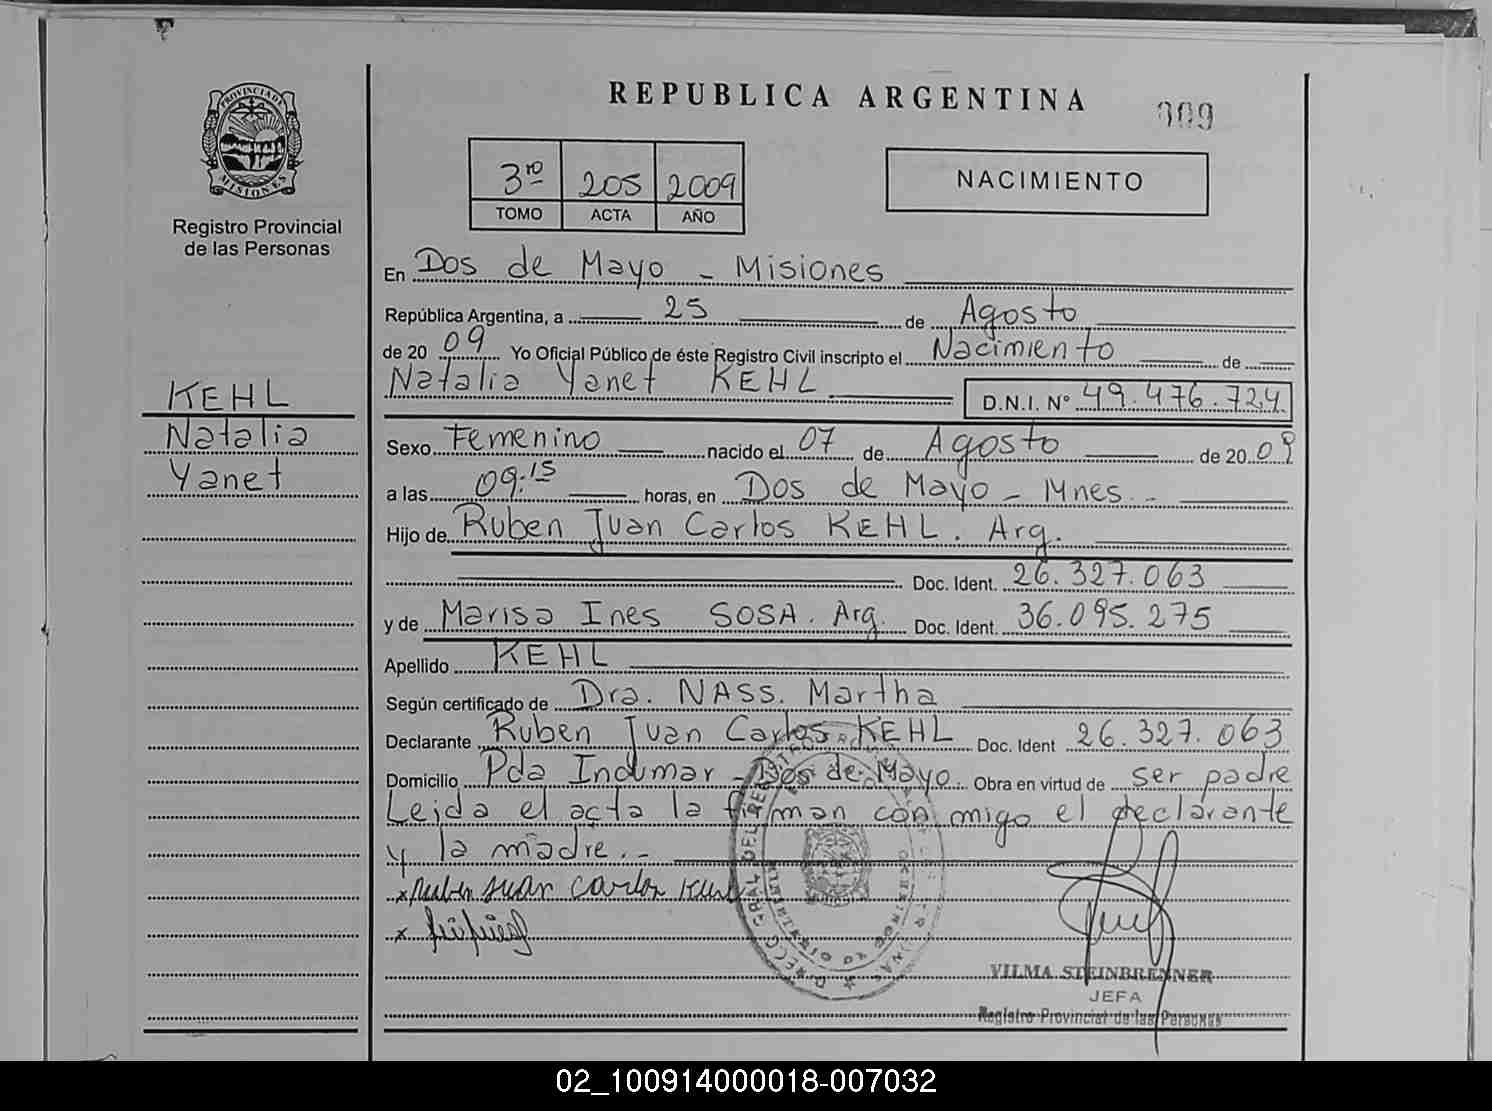 REPUBLICA ARGENTINA
009
PROVINCIA DE MISIONES
Registro Provincial
de las Personas
3ro 205 2009
TOMO ACTA AÑO
NACIMIENTO
KEHL
Natalia
Yanet
En Dos de Mayo - Misiones
República Argentina, a 25 de Agosto
de 20 09 Yo Oficial Público de éste Registro Civil inscripto el Nacimiento de
Natalia Yanet KEHL D.N.I. Nº 49.476.724
Sexo Femenino nacido el 07 de Agosto de 20 09
a las 09:15 horas, en Dos de Mayo - Mnes. -
Hijo de Ruben Juan Carlos KEHL. Arg.
Doc. Ident. 26.327.063
y de Marisa Ines SOSA. Arg. Doc. Ident. 36.095.275
Apellido KEHL
Según certificado de Dra. NASS. Martha
Declarante Ruben Juan Carlos KEHL Doc. Ident 26.327.063
Domicilio Pda Indumar - Dos de Mayo. Obra en virtud de ser padre
Leida el acta la firman conmigo el declarante
y la madre. -
x Ruben Juan Carlos Kehl
x
VILMA STEINBRENNER
JEFA
Registro Provincial de las Personas
02_100914000018-007032